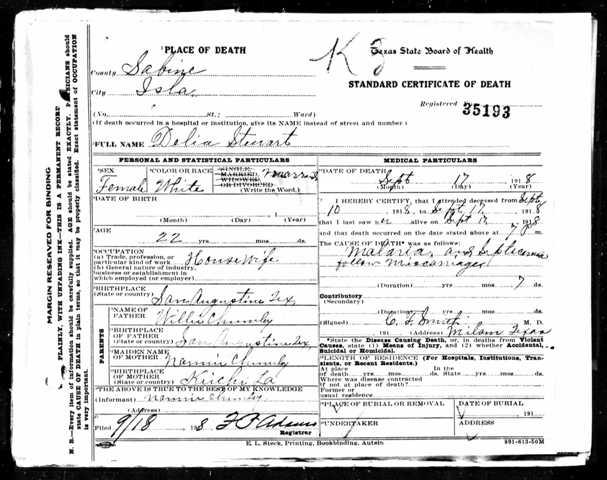 MARGIN RESERVED FOR BINDING
PLAINLY, WITH UNFADING INK—THIS IS A PERMANENT RECORD
N. B.—Every item of information should be carefully supplied. AGE should be stated EXACTLY. PHYSICIANS should
state CAUSE OF DEATH in plain terms, so that it may be properly classified. Exact statement of OCCUPATION
is very important.
PLACE OF DEATH
County Sabine
City Isla
(No. St.; Ward)
(If death occurred in a hospital or institution, give its NAME instead of street and number.)
FULL NAME Delia Stewart
K
Texas State Board of Health
STANDARD CERTIFICATE OF DEATH
Registered 35193
PERSONAL AND STATISTICAL PARTICULARS
SEX
Female
COLOR OR RACE
White
SINGLE,
MARRIED,
WIDOWED
OR DIVORCED
(Write the Word.)
Married
DATE OF BIRTH
(Month) (Day) 1
AGE
22 yrs. mos. ds.
OCCUPATION
(a) Trade, profession, or
particular kind of work
(b) General nature of industry,
business or establishment in
which employed (or employer).
Housewife
BIRTHPLACE
(State or country)
San Augustine Tex
PARENTS
NAME OF
FATHER
Willie Chumley
BIRTHPLACE
OF FATHER
(State or country)
San Augustine Tex
MAIDEN NAME
OF MOTHER
Nannie Chumley
BIRTHPLACE
OF MOTHER
(State or country)
La
THE ABOVE IS TRUE TO THE BEST OF MY KNOWLEDGE
(Informant) Nannie Chumley
(Address)
Filed 9/18 1918
Registrar
MEDICAL PARTICULARS
DATE OF DEATH
Sept 17 1918
(Month) (Day) (Year)
I HEREBY CERTIFY, that I attended deceased from Sept
10 1918, to Sept 17, 1918
that I last saw her alive on Sept 17 1918
and that death occurred on the date stated above at m.
The CAUSE OF DEATH* was as follows:
Malaria and
follow miscarriage
(Duration) yrs. mos. 7 ds.
Contributory
(Secondary)
(Duration) yrs. mos. ds.
(Signed) C. F. Smith M. D.
(Address) Milam Texas
*State the Disease Causing Death, or, in deaths from Violent
Causes, state (1) Means of Injury, and (2) whether Accidental,
Suicidal or Homicidal.
LENGTH OF RESIDENCE (For Hospitals, Institutions, Transients,
or Recent Residents.)
At place In the
of death yrs. mos. ds. State yrs. mos. ds.
Where was disease contracted
if not at place of death?
Former or
usual residence
PLACE OF BURIAL OR REMOVAL
DATE OF BURIAL
191
UNDERTAKER
ADDRESS
E. L. Steck, Printing, Bookbinding, Austin
991-613-50M